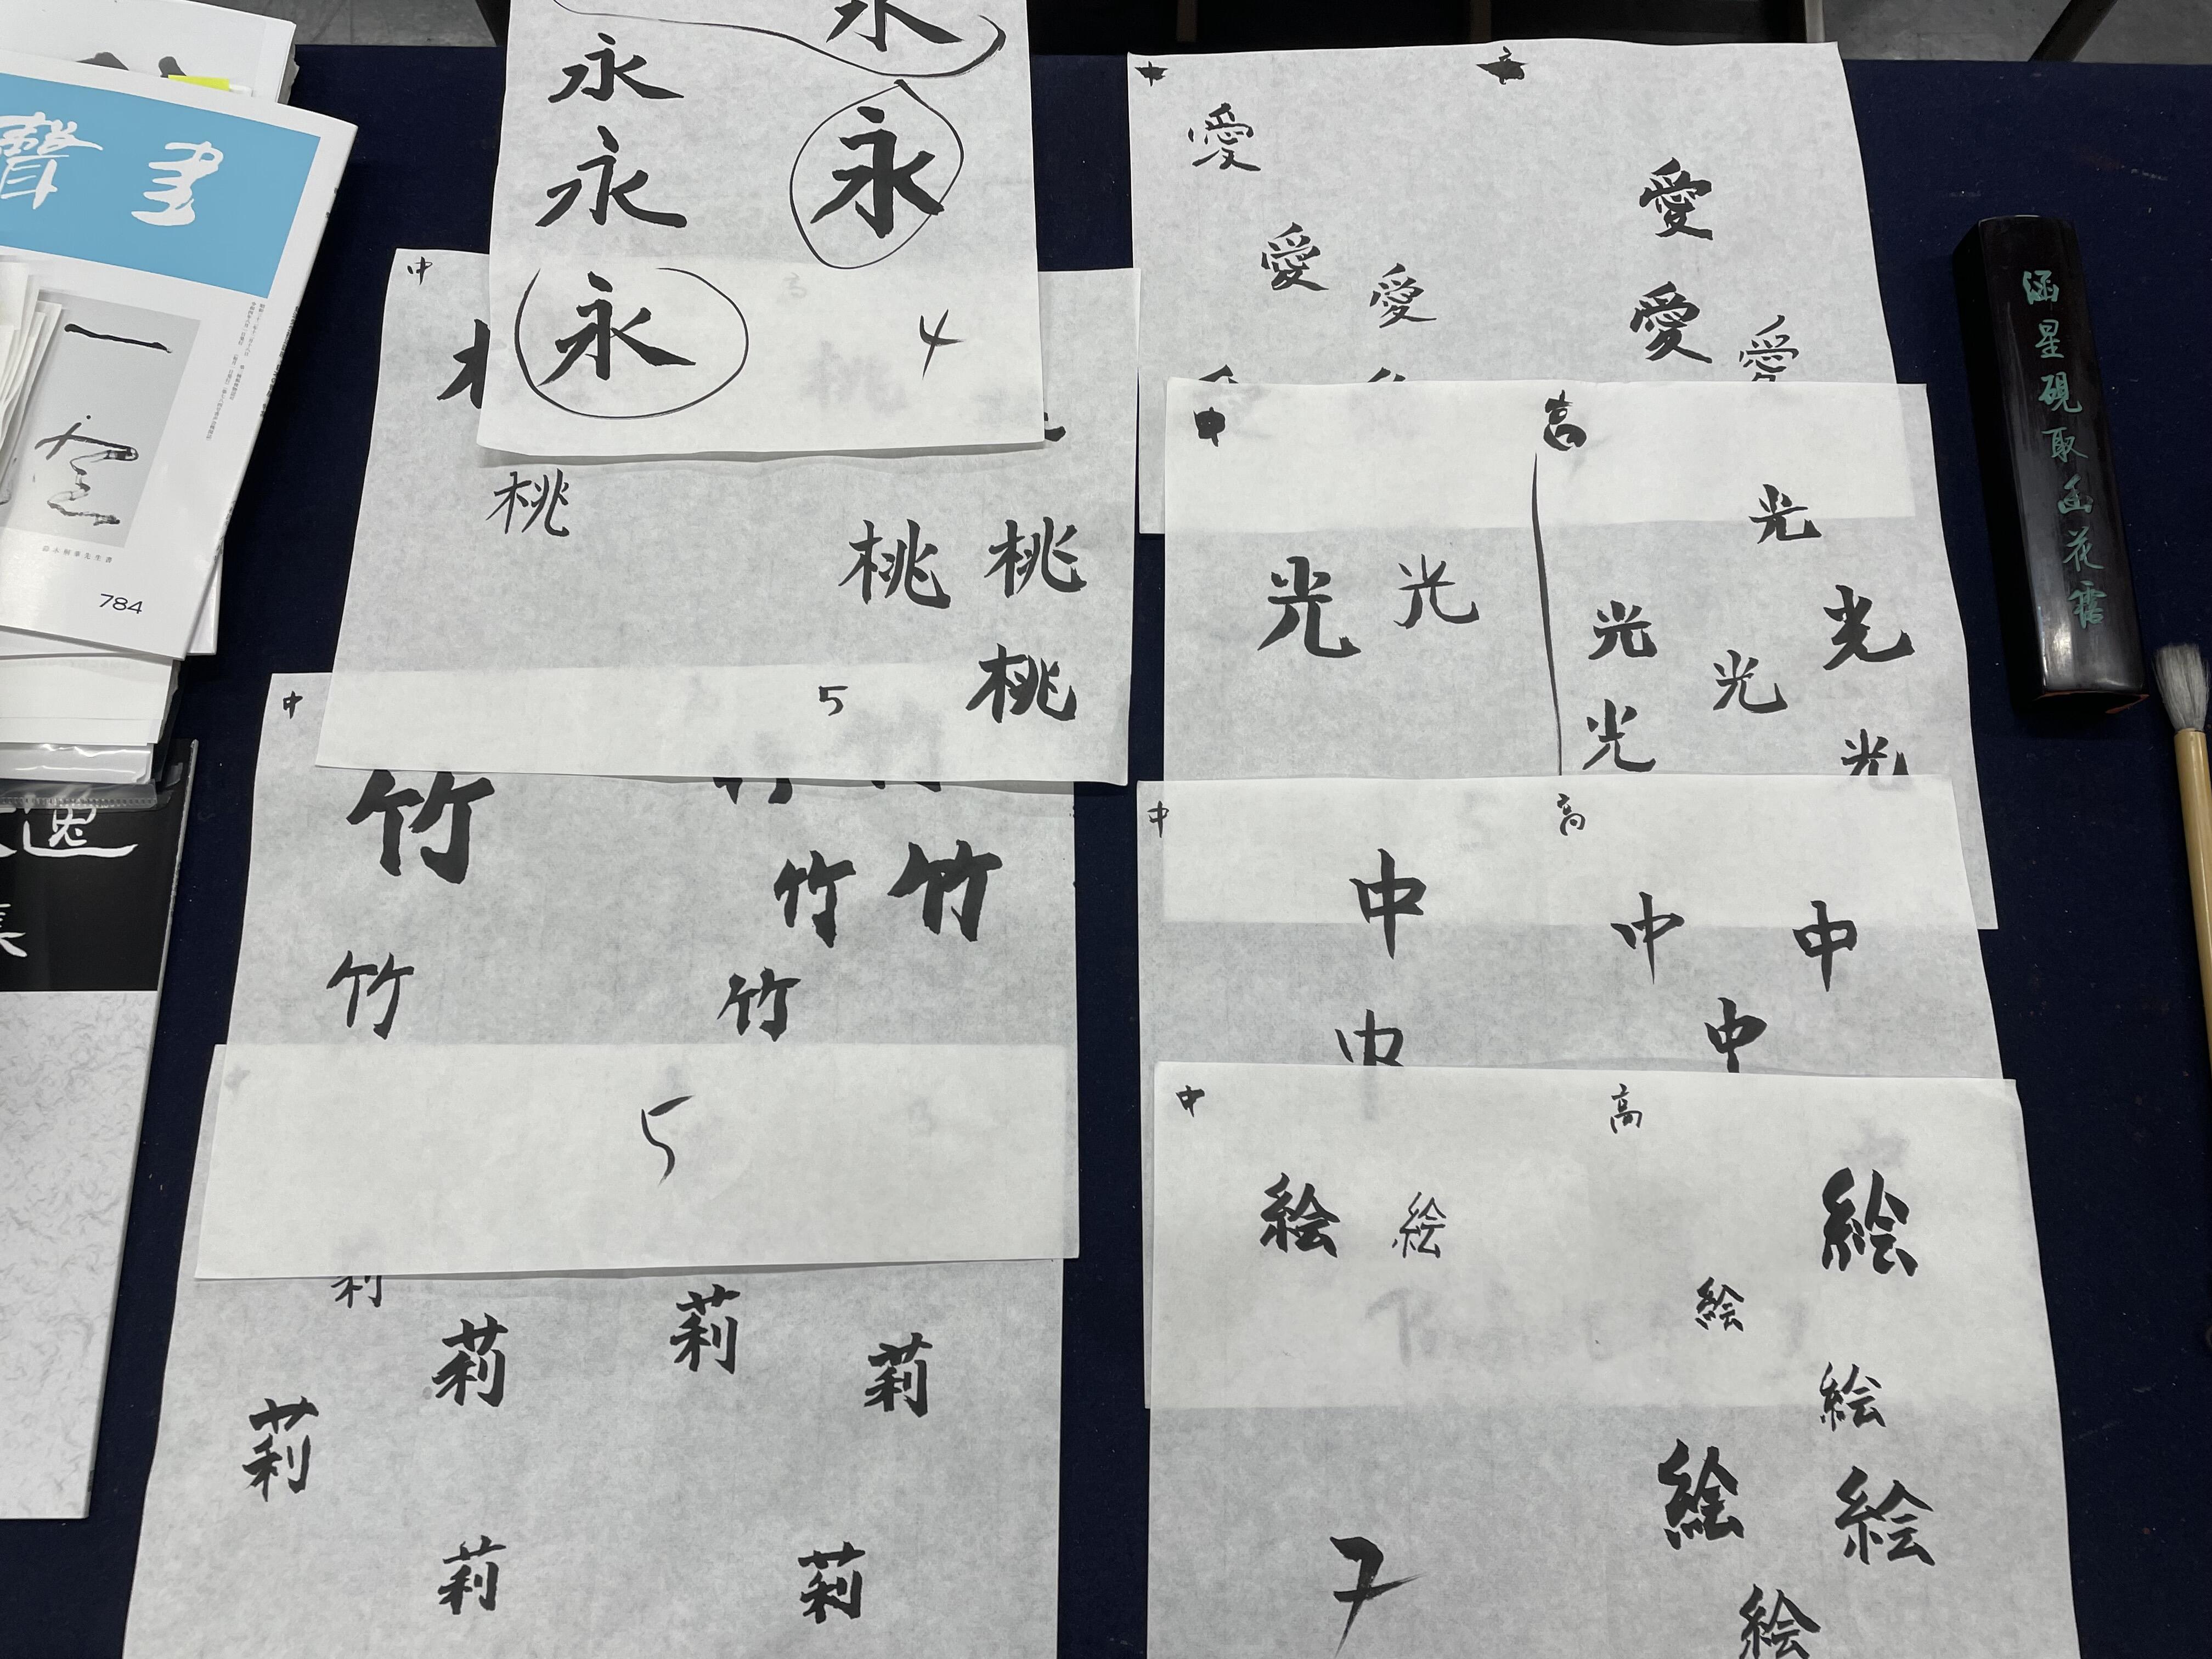 書聲
784
永
永 永
永
4
中
桃
桃 桃
桃
5
中
竹
竹 竹
竹 竹
5
莉
莉 莉 莉
莉
莉 莉
中 高
愛
愛 愛
愛 愛
愛
中 高
光
光 光
光 光
光 光
光
中 高
中 中 中
中 中
中 高
絵 絵 絵
絵
絵
絵 絵
絵
7
涵星硯取函花露